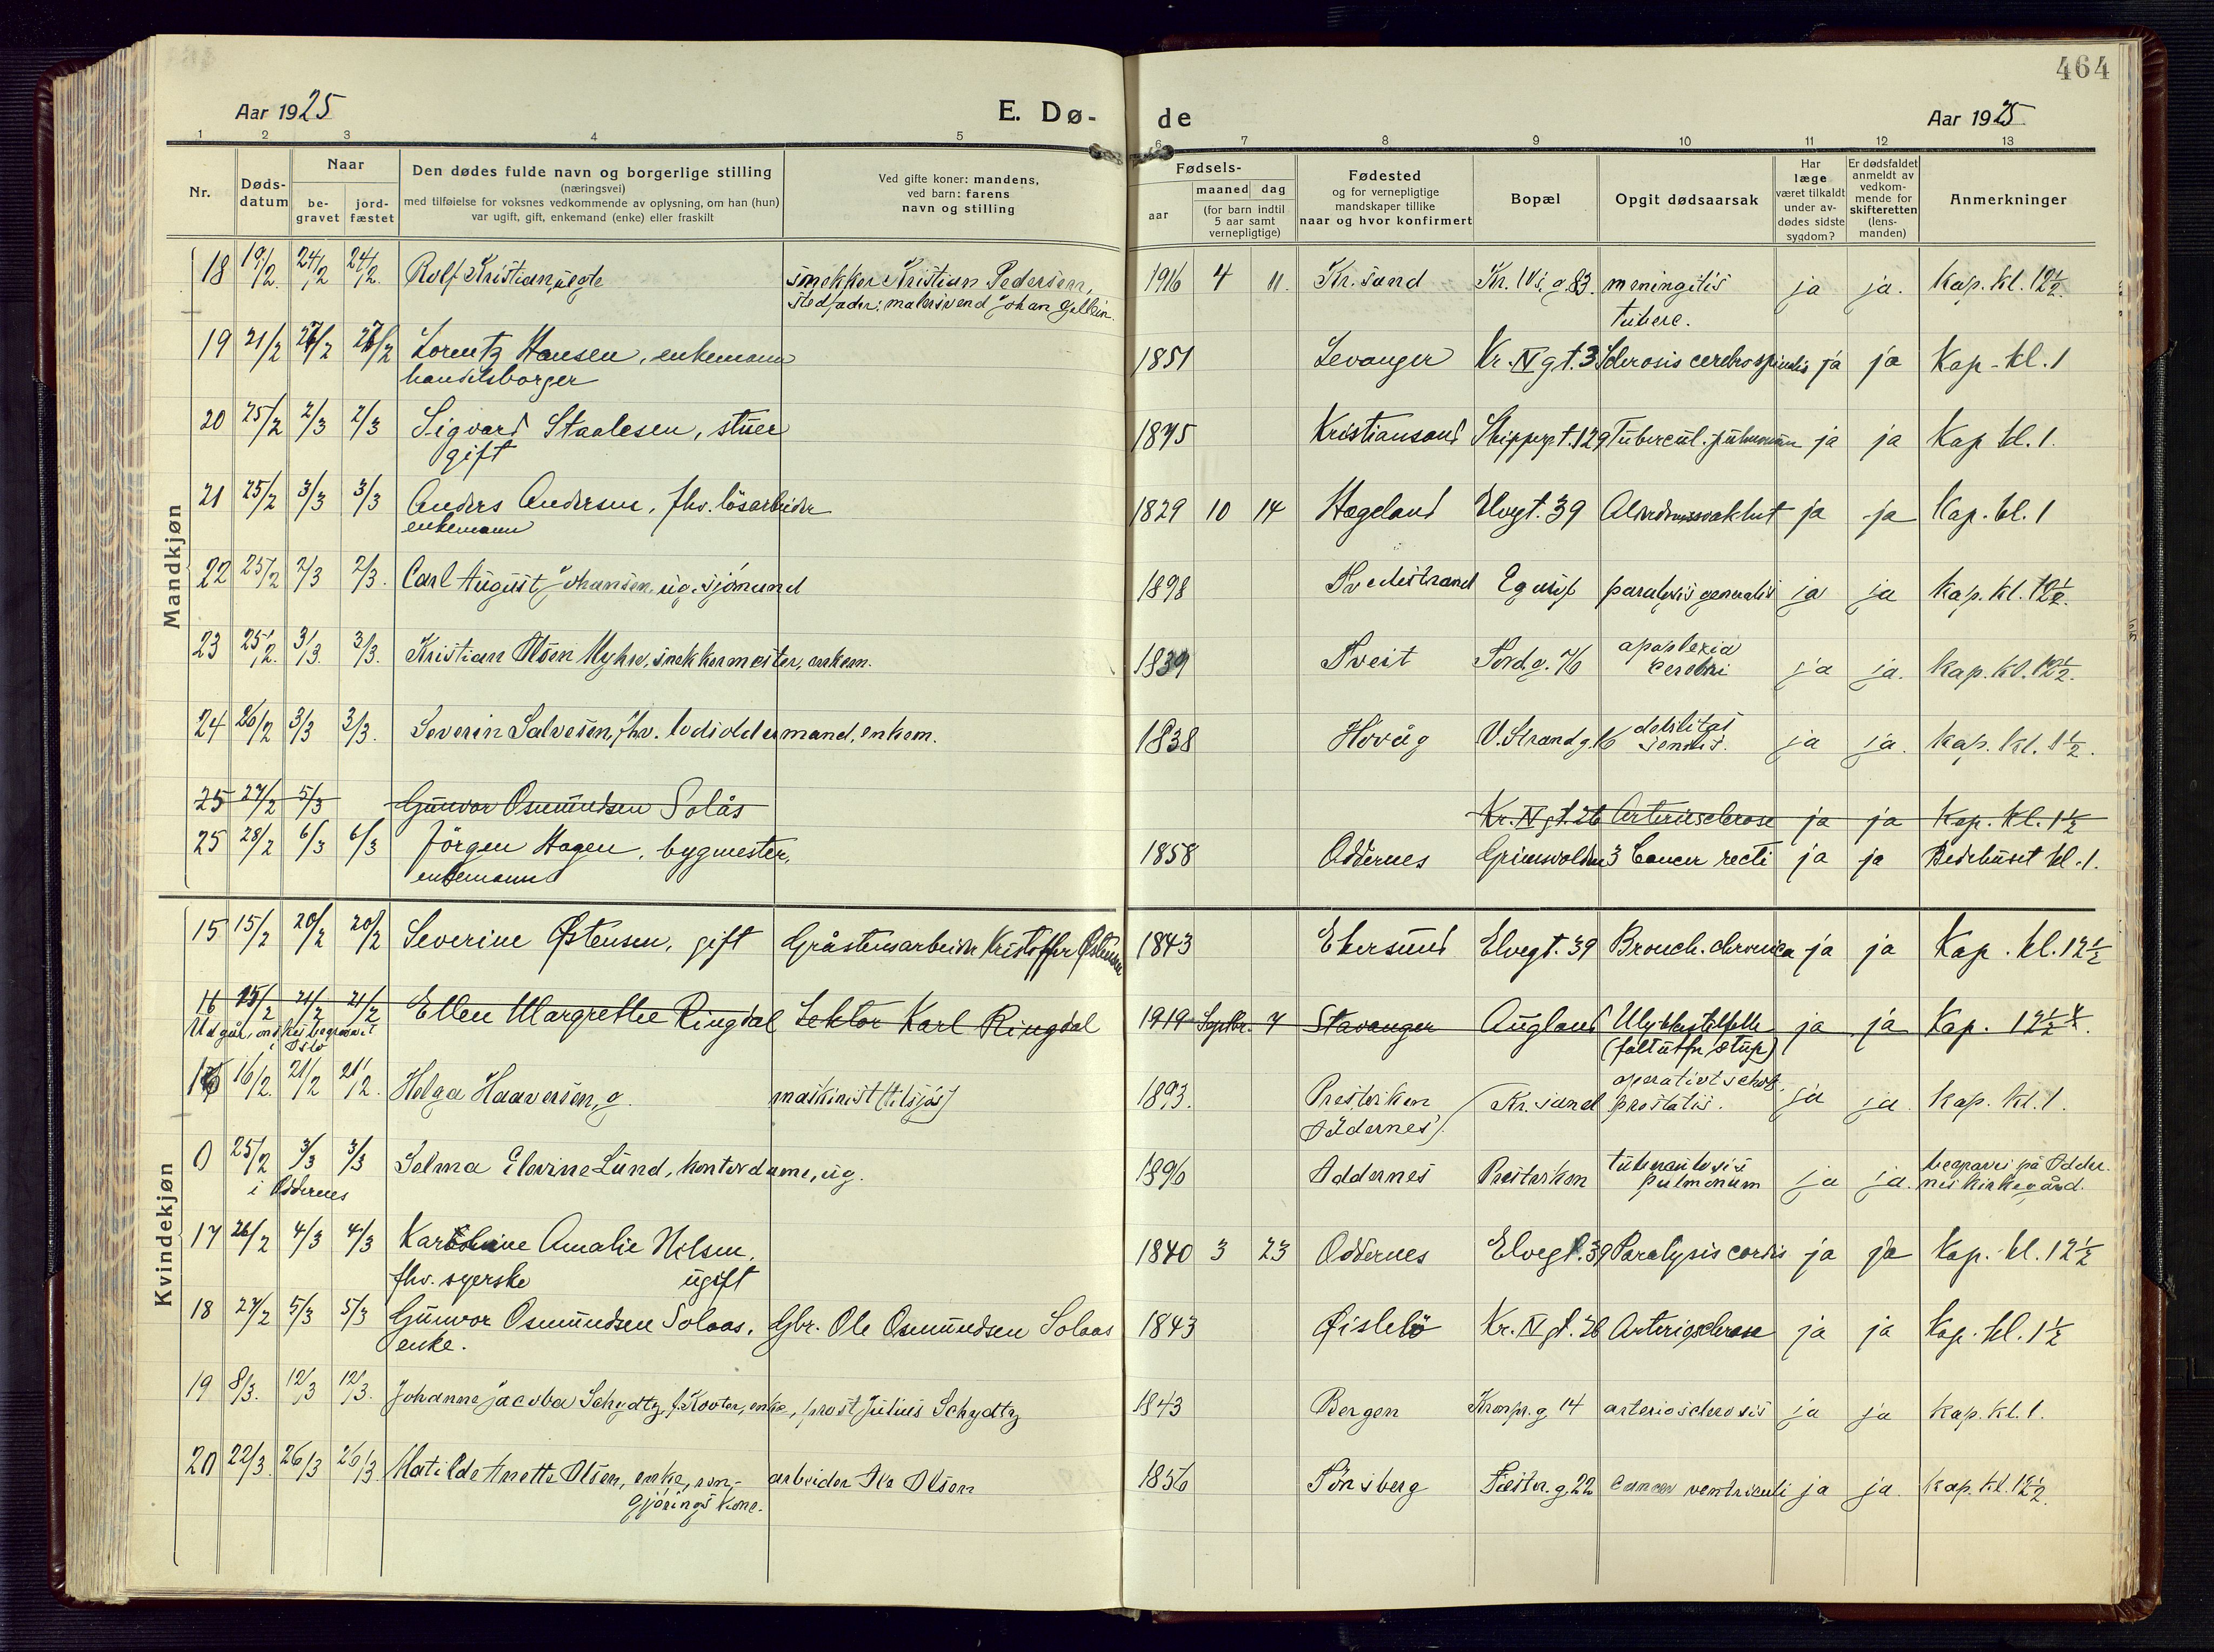 464
Aar 1925 E. Dø- de Aar 1925
1 2 3 4 5 6 7 8 9 10 11 12 13
Nr.
Døds-
datum
Naar
be-
gravet
jord-
fæstet
Den dødes fulde navn og borgerlige stilling
(næringsvei)
med tilføielse for voksnes vedkommende av oplysning, om han (hun)
var ugift, gift, enkemand (enke) eller fraskilt
Ved gifte koner: mandens,
ved barn: farens
navn og stilling
Fødsels-
aar
maaned dag
(for barn indtil
5 aar samt
vernepligtige)
Fødested
og for vernepligtige
mandskaper tillike
naar og hvor konfirmert
Bopæl
Opgit dødsaarsak
Har
læge
været tilkaldt
under av-
dødes sidste
sygdom?
Er dødsfaldet
anmeldt av
vedkom-
mende for
skifteretten
(lens-
manden)
Anmerkninger
Mandkjøn
18 19/2. 24/2 24/2. Rolf Kristian, uegte snekker Kristian Pedersen, 1916 4 11. Kr.sand Kr. IVs g. 83. meningitis ja ja. Kap. kl. 12½.
stedfader: malersvend Johan Gellein. tuberc.
19 21/2 27/2 27/2 Lorentz Hansen, enkemann 1851 Levanger Kr. IV gt. 3 Sclerosis cerebrospinalis ja ja Kap. kl. 1
handelsborger
20 25/2 2/3 2/3 Sigvard Staalesen, stuer 1875 Kristiansand Skippergt. 129 Tubercul. pulmonum ja ja Kap kl. 1.
gift
21 25/2 3/3 3/3 Anders Andersen, fhv. lösarbeider 1829 10 14 Hægeland Elvegt. 39 Alderdomssvakhet ja ja Kap. kl. 1
enkemann
22 25/2 2/3 2/3. Carl August Johansen, ug. sjömand 1898 Tvedestrand Eg asyl paralysis generalis ja ja Kap. kl. 12½.
23 25/2. 3/3. 3/3. Kristian Olsen Myhre, snekkermester, enkem. 1839 Tveit Tord.g. 76 apoplexia ja ja. Kap. kl. 12½.
cerebri
24 26/2 3/3 3/3. Severin Salvesen, fhv. lodsoldermand, enkem. 1838 Hövåg V. Strandg. 16 debilitas ja ja. Kap. kl. 1½.
senilis.
25 27/2 5/3 Gunvor Osmundsen Solås Kr. IV gt. 26 Arteriesclerose ja ja Kap. kl. 1½
25 28/2 6/3 6/3 Jörgen Hagen, bygmester, 1858 Oddernes Grimsvolden 3 Cancer recti ja ja Bedehuset kl. 1.
enkemann
Kvindekjøn
15 15/2 20/2 20/2 Severine Østensen, gift Gråstensarbeider Kristoffer Østensen 1843 Ekersund Elvegt. 39 Bronch. chronica ja ja Kap. kl. 12½
16 15/2 21/2 21/2 Ellen Margrethe Ringdal Lektor Karl Ringdal 1919 Septbr. 7 Stavanger Augland Ulykkestilfelle ja ja Kap. 12½
Utgår, ønskes begravet (falt utfor stup)
i Oslo
16 16/2. 21/2 21/2. Helga Haaversen, g. maskinist (tilsjös) 1893. Prestviken Kr.sand operativt schok ja ja. Kap. kl. 1.
(Oddernes). prostatis.
0 25/2 3/3 3/3 Selma Elevine Lund, kontordame, ug. 1896 Oddernes Prestviken tuberculosis ja ja. begraves på Odder-
i Oddernes pulmonum nes kirkegård.
17 26/2 4/3 4/3 Karoline Amalie Nilsen, 1840 3 23 Oddernes Elvegt. 39 Paralysis cordis ja ja Kap. kl. 12½
fhv. syerske ugift
18 27/2 5/3 5/3 Gunvor Osmundsen Solaas, Gbr. Ole Osmundsen Solaas 1843 Øislebö Kr. IV gt. 26 Arteriosclerose ja ja Kap. kl. 1½
enke.
19 8/3. 12/3 12/3. Johanne Jacoba Schydtz, f. Koster, enke, prost Julius Schydtz 1843 Bergen Kronpr.g. 14 arteriosclerosis ja ja Kap. kl. 1.
20 22/3. 26/3 26/3 Matilde Anette Olsen, enke, ren- arbeider Ole Olsen 1856 Tönsberg Fæstn.g. 22 cancer ventriculi ja ja. Kap. kl. 12½.
gjörings kone.